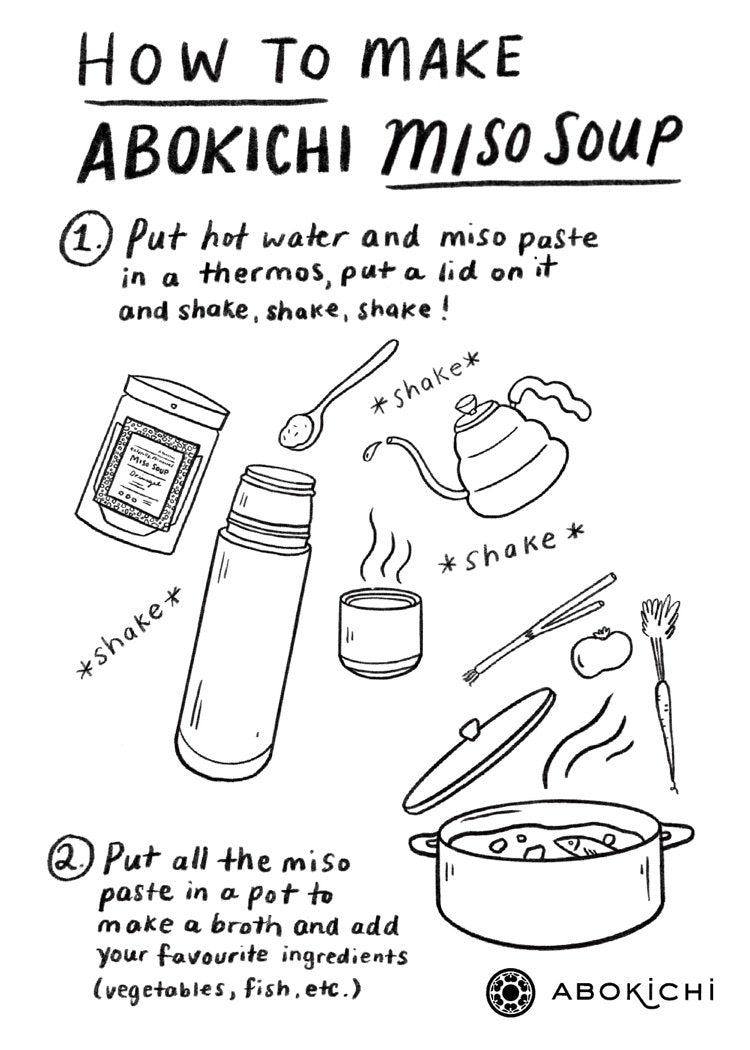 HOW TO MAKE
ABOKICHI MISO SOUP
1. Put hot water and miso paste
in a thermos, put a lid on it
and shake, shake, shake!
*shake*
MISO SOUP
*shake*
*shake*
2. Put all the miso
paste in a pot to
make a broth and add
your favourite ingredients
(vegetables, fish, etc.)
ABOKICHI